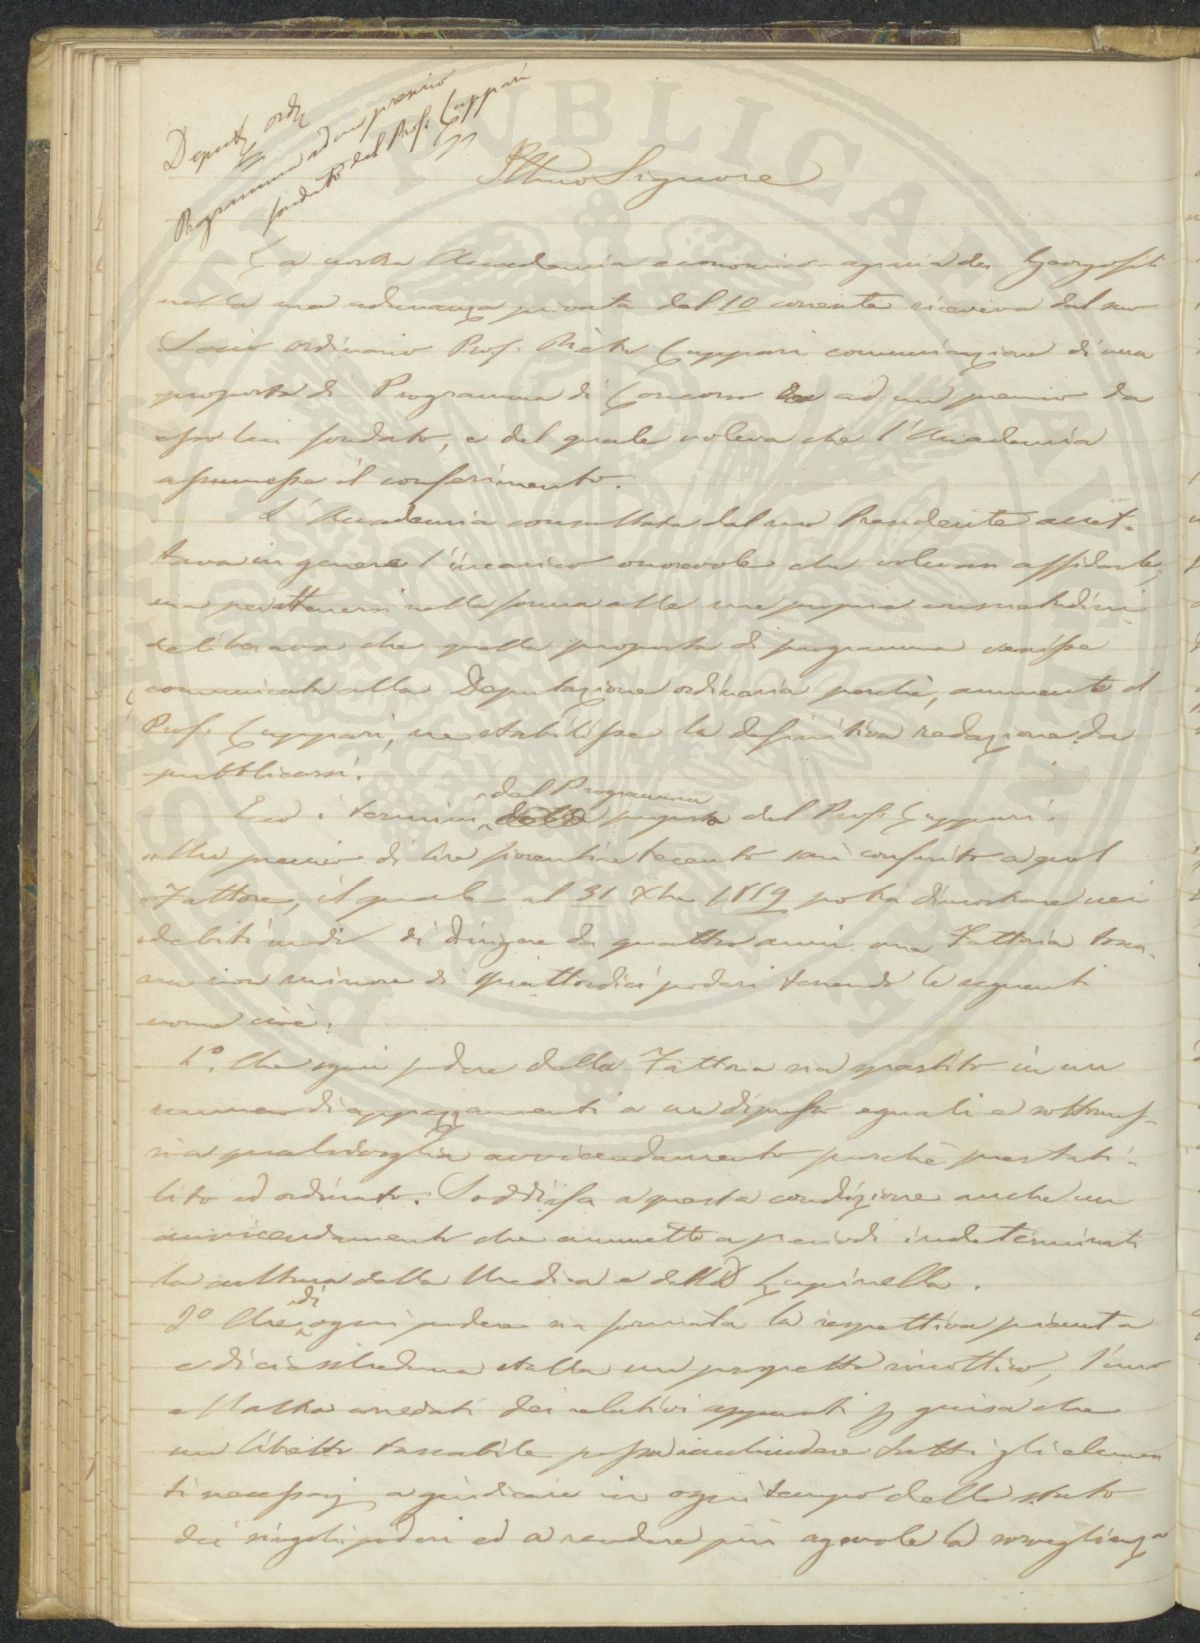 Deput. ord.
Programma ad un premio
fondato dal Prof. Cuppari
Illmo Signore
La nostra Accademia economico-agraria dei Georgofili
nella sua adunanza privata del 10 corrente riceveva dal suo
Socio ordinario Prof. Pietro Cuppari comunicazione di una
proposta di Programma di Concorso ad un premio da
esso lui fondato, e del quale voleva che l'Accademia
assumesse il conferimento.
L'Accademia consultata dal suo Presidente accet-
tava in genere l'incarico onorevole che volevasi affidarle,
ma per attenersi nella forma alle sue proprie consuetudini
deliberava che quella proposta di programma venisse
comunicata alla Deputazione ordinaria perchè, annuente il
Prof. Cuppari, ne stabilisse la definitiva redazione da
pubblicarsi.
del Programma
Ecco i termini proposto dal Prof. Cuppari.
" Un premio di lire fiorentine trecento sarà conferito a quel
" Fattore, il quale al 31 Xbre 1859 potrà dimostrare nei
debiti modi di dirigere da quattro anni una Fattoria tosca-
na non minore di quattordici poderi tenendo le seguenti
norme cioè:
1.º Che ogni podere della Fattoria sia spartito in un
numero di appezzamenti a un dipresso eguali e sottomes-
si a qualsivoglia avvicendamento purchè prestabi-
lito ed ordinato. Soddisfa a questa condizione anche un
avvicendamento che ammetta a periodi indeterminati
la cultura della Medica e della Lupinella.
di
2º Che ogni podere sia formata la rispettiva pianta
e di ciascheduna stalla un prospetto sinottico, l'uno
e l'altra corredati dei relativi appunti per guisa che
un libretto tascabile possa racchiudere tutti gli elemen
ti necessarj a giudicare in ogni tempo dello stato
dei singoli poderi ed a rendere più agevole la sorveglianza